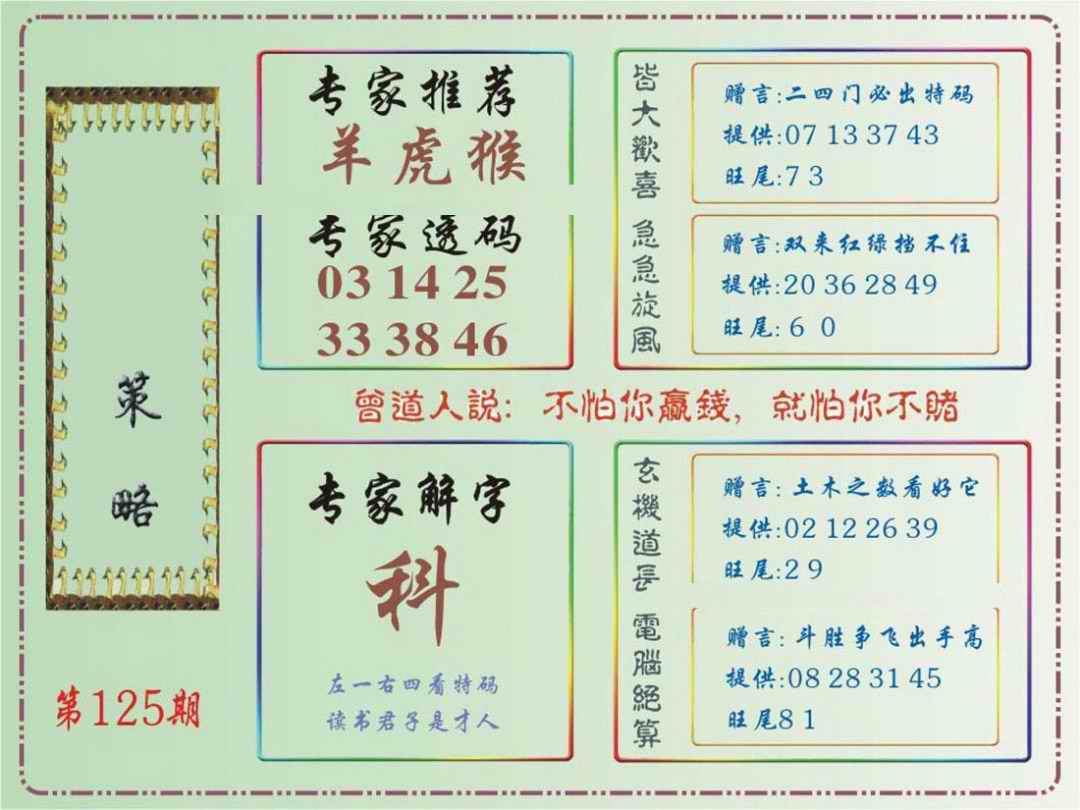 策
略
第125期
专家推荐
羊虎猴
专家透码
03 14 25
33 38 46
皆大歡喜
赠言:二四门必出特码
提供:07 13 37 43
旺尾:7 3
急急旋風
赠言:双来红绿挡不住
提供:20 36 28 49
旺尾:6 0
曾道人説: 不怕你贏錢, 就怕你不賭
专家解字
科
左一右四看特码
读书君子是才人
玄機道長
赠言: 土木之数看好它
提供:02 12 26 39
旺尾:2 9
電腦絕算
赠言: 斗胜争飞出手高
提供:08 28 31 45
旺尾8 1